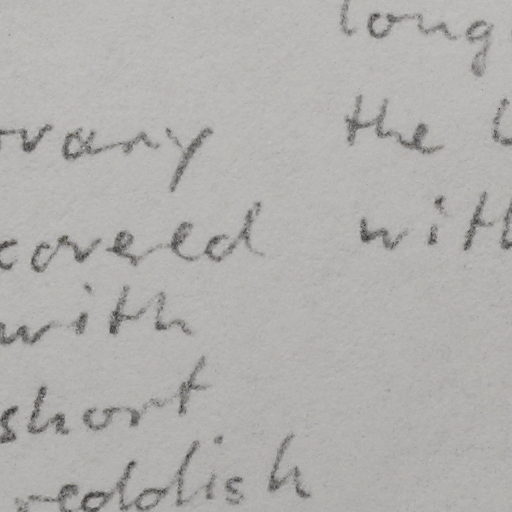 long
ovary the
covered with
with
short
reddish